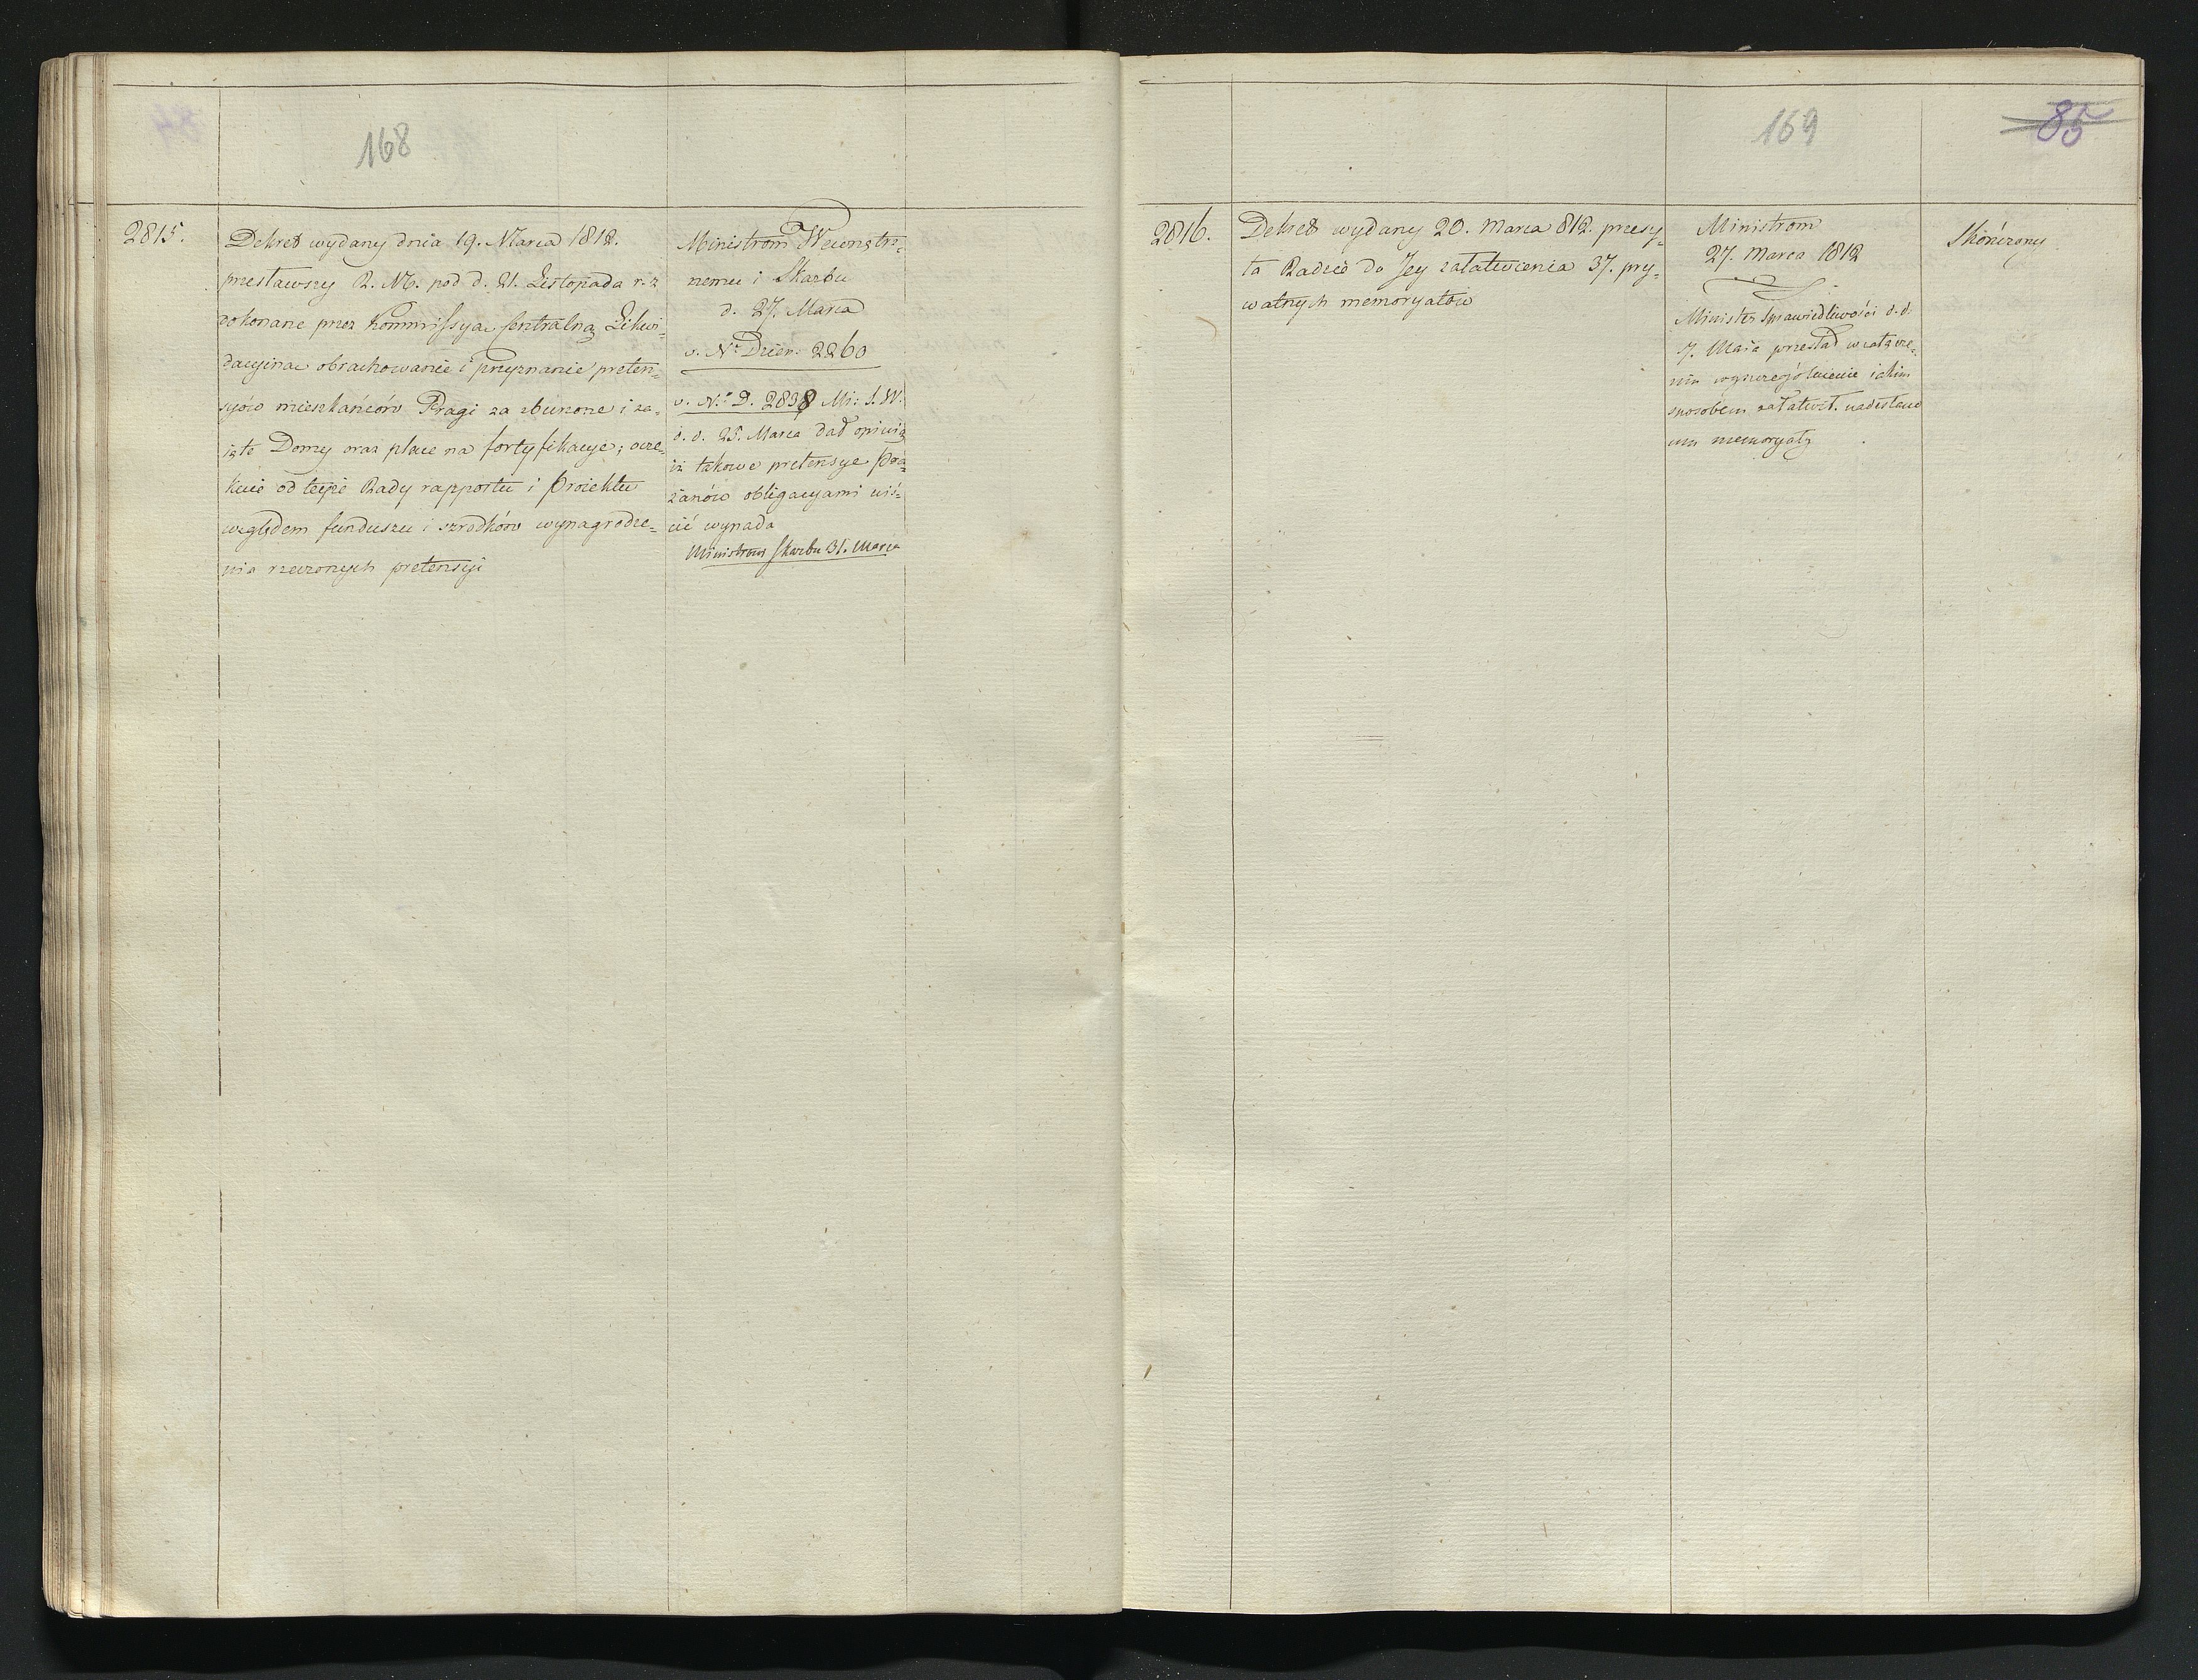 168
2815.
Dekret wydany dnia 19. Marca 1812.
przesławszy R. M. pod d. 21. Listopada r. z
dokonane przez Kommissyą Centralną Likwi=
dacyina obrachowanie i przyznanie preten=
syów mieszkańców Pragi za zburzone i za=
ięte Domy oraz place na fortyfikacye; ocze=
kuie od teyże Rady rapportu i proiektu
względem funduszu i szrodków wynagrodze=
nia rzeczonych pretensyi
Ministrom Wewnętrz=
nemu i Skarbu
d. 27. Marca
v. Nr. Dzien. 2260
v. Nr. D. 2838 Mi: S. W.
d. d. 25. Marca dał opinią
iż takowe pretensye Pra=
żanów obligacyami uiś=
cić wypada
Ministrowi Skarbu 31. Marca
169
85
2816.
Dekret wydany 20. Marca 812. przesy=
ła Radzie do Jey załatwienia 37. pry=
watnych memoryałów
Ministrom
27. Marca 1812
Minister Sprawiedliwości d. d.
7. Maia przesłał w załącze=
niu wyszczególnienie iakim
sposobem załatwił. nadesłane
mu memoryały
Skończony